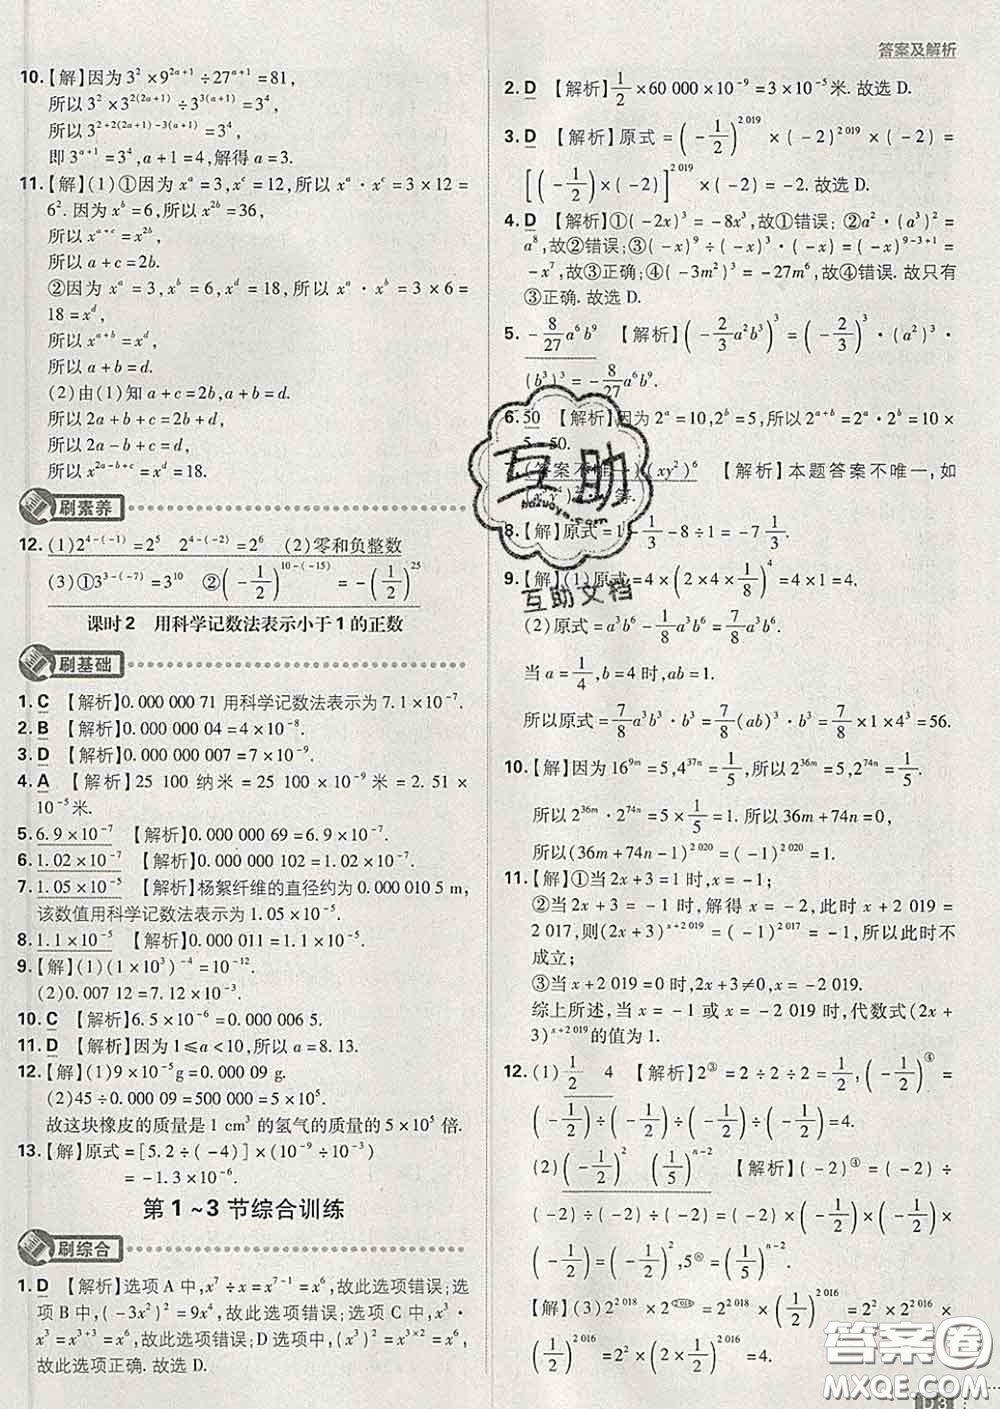 答案及解析
10.【解】因为 3²×9^(2a+1)÷27^(a+1)=81,
所以 3²×3^(2(2a+1))÷3^(3(a+1))=3⁴,
所以 3^(2+2(2a+1)-3(a+1))=3⁴,
即 3^(a+1)=3⁴, a+1=4,解得 a=3.
11.【解】(1)①因为 x^a=3, x^c=12,所以 x^a·x^c=3×12=
6². 因为 x^b=6,所以 x^(2b)=36,
所以 x^(a+c)=x^(2b),
所以 a+c=2b.
②因为 x^a=3, x^b=6, x^d=18,所以 x^a·x^b=3×6=
18=x^d,
所以 x^(a+b)=x^d,
所以 a+b=d.
(2)由(1)知 a+c=2b, a+b=d.
所以 2a+b+c=2b+d,
所以 2a-b+c=d,
所以 x^(2a-b+c)=x^d=18.
刷素养
12.(1)2^(4-(-1))=2⁵ 2^(4-(-2))=2⁶ (2)零和负整数
(3)①3^(3-(-7))=3^10 ②(-1/2)^(10-(-15))=(-1/2)^25
课时2 用科学记数法表示小于1的正数
刷基础
1. C 【解析】0.000 000 71 用科学记数法表示为 7.1×10^-7.
2. B 【解析】0.000 000 04=4×10^-8.
3. D 【解析】0.000 000 007=7×10^-9.
4. A 【解析】25 100 纳米=25 100×10^-9 米=2.51×
10^-5 米.
5. 6.9×10^-7 【解析】0.000 000 69=6.9×10^-7.
6. 1.02×10^-7 【解析】0.000 000 102=1.02×10^-7.
7. 1.05×10^-5 【解析】杨絮纤维的直径约为 0.000 010 5 m,
该数值用科学记数法表示为 1.05×10^-5.
8. 1.1×10^-5 【解析】0.000 011=1.1×10^-5.
9.【解】(1)(1×10³)^-4=10^-12.
(2)0.007 12=7.12×10^-3.
10. C 【解析】6.5×10^-6=0.000 006 5.
11. D 【解析】因为 1≤a<10,所以 a=8.13.
12.【解】(1)9×10^-5 g=0.000 09 g.
(2)45÷0.000 09=500 000=5×10⁵.
故这块橡皮的质量是 1 cm³ 的氢气的质量的 5×10⁵ 倍.
13.【解】原式=[5.2÷(-4)]×(10^-9÷10^-3)
=-1.3×10^-6.
第1~3节综合训练
刷综合
1. D 【解析】选项 A 中, x⁷÷x=x^(7-1)=x⁶,故此选项错误;选
项 B 中,(-3x²)²=9x⁴,故此选项错误;选项 C 中, x³·
x³=x^(3+3)=x⁶,故此选项错误;D 选项中,(x³)²=x^(3×2)=x⁶,
故此选项正确. 故选 D.
2. D 【解析】1/2×60 000×10^-9=3×10^-5 米. 故选 D.
3. D 【解析】原式=(-1/2)^2 019×(-2)^2 019×(-2)=
[(-1/2)×(-2)]^2 019×(-2)=-2. 故选 D.
4. D 【解析】①(-2x)³=-8x³,故①错误; ②a²·(a³)²=
a⁸,故②错误;③(-x)⁹÷(-x)³·(-x)=(-x)^(9-3+1)=
-x⁷,故③正确;④(-3m²)³=-27m⁶,故④错误. 故只有
③正确. 故选 D.
5. -8/27a⁶b⁹ 【解析】(-2/3a²b³)³=(-2/3)³·(a²)³·
(b³)³=-8/27a⁶b⁹.
6. 50 【解析】因为 2^a=10, 2^b=5,所以 2^(a+b)=2^a·2^b=10×
5=50.
(答案不唯一)(xy²)⁶ 【解析】本题答案不唯一,如
等.
8.【解】原式=1-1/3-8÷1=-7 1/3.
9.【解】(1)原式=4×(2×4×1/8)⁴=4×1=4.
(2)原式=a³b⁶-1/8a³b⁶=7/8a³b⁶.
当 a=1/4, b=4 时, ab=1.
所以原式=7/8a³b³·b³=7/8(ab)³·b³=7/8×1×4³=56.
10.【解】因为 16^(9m)=5, 4^(37n)=1/5,所以 2^(36m)=5, 2^(74n)=1/5,
所以 2^(36m)·2^(74n)=5×1/5=1. 所以 36m+74n=0,
所以(36m+74n-1)^2 020=(-1)^2 020=1.
11.【解】①当 2x+3=1 时, x=-1;
②当 2x+3=-1 时,解得 x=-2,此时 x+2 019=
2 017,则(2x+3)^(x+2 019)=(-1)^2 017=-1,所以此时不
成立;
③当 x+2 019=0 时, 2x+3≠0, x=-2 019.
综上所述,当 x=-1 或 x=-2 019 时,代数式(2x+
3)^(x+2 019) 的值为 1.
12.(1)1/2 4 【解析】2^③=2÷2÷2=1/2,(-1/2)^④=
(-1/2)÷(-1/2)÷(-1/2)÷(-1/2)=4.
(2)(-1/2)² (1/5)^(n-2) 【解析】(-2)^④=(-2)÷
(-2)÷(-2)÷(-2)=(-2)×(-1/2)×(-1/2)×
(-1/2)=(-1/2)², 5^ⓝ=(1/5)^(n-2).
【解】(3)2^2 018×2^(2 018)=2^2 018×(1/2)^2 016=2²×2^2 016×(1/2)^2 016
=2²×(2×1/2)^2 016=2²=4.
互助
互助文档
答案圈
MXQE.COM
D3